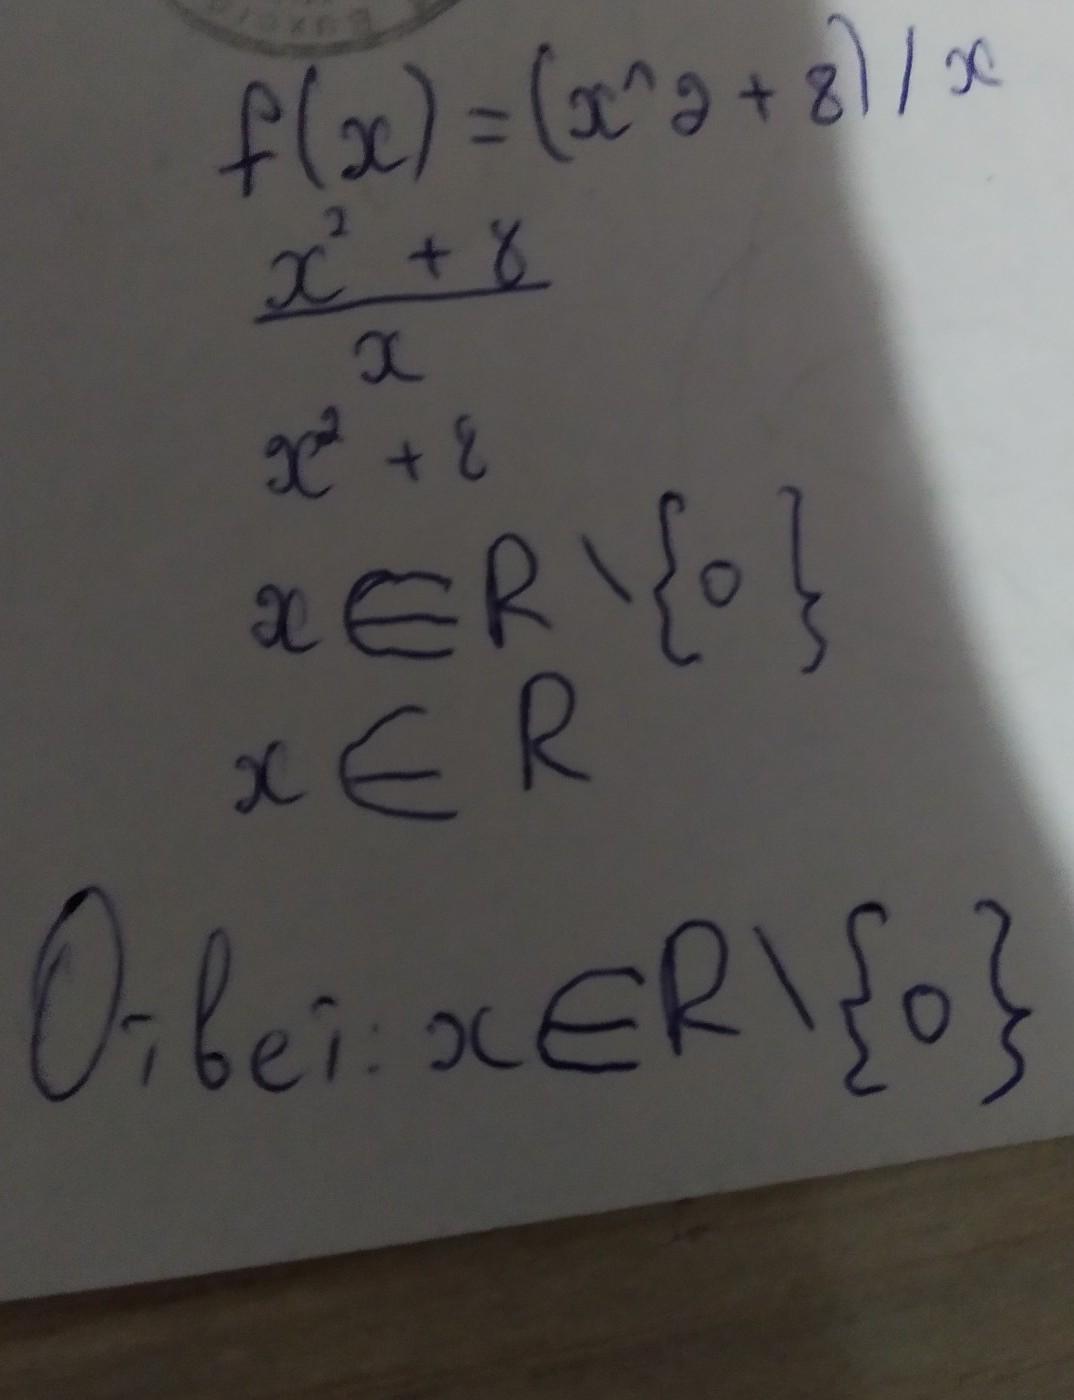 f(x) = (x^2 + 8) / x
x² + 8
x
x² + 8
x ∈ R \ {0}
x ∈ R
Ответ: x ∈ R \ {0}